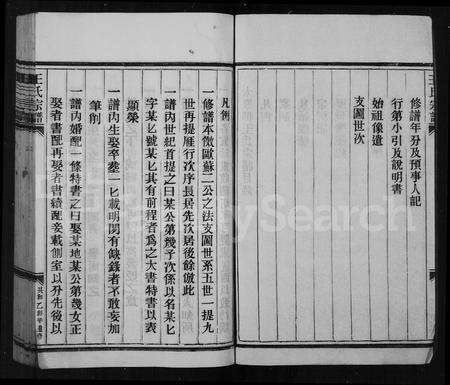 修譜年分及預事人記
行第小引及說明書
始祖像遺
支圖世次
王氏宗譜
凡例
一修譜本倣歐蘇二公之法支圖世系五世一提九
世再提雁行次序長居先次居後餘倣此
一譜內世紀首提之曰某公第幾子次係以名某匕
字某匕號某匕其有前程者為之大書特書以表
顯榮
一譜內生娶卒塟一匕載明間有缺錄者不敢妄加
筆削
一譜內婚配一條特書之曰娶某地某公第幾女正
娶者書配再娶者書續配妾載側室以分先後以
王氏宗譜
MySearch